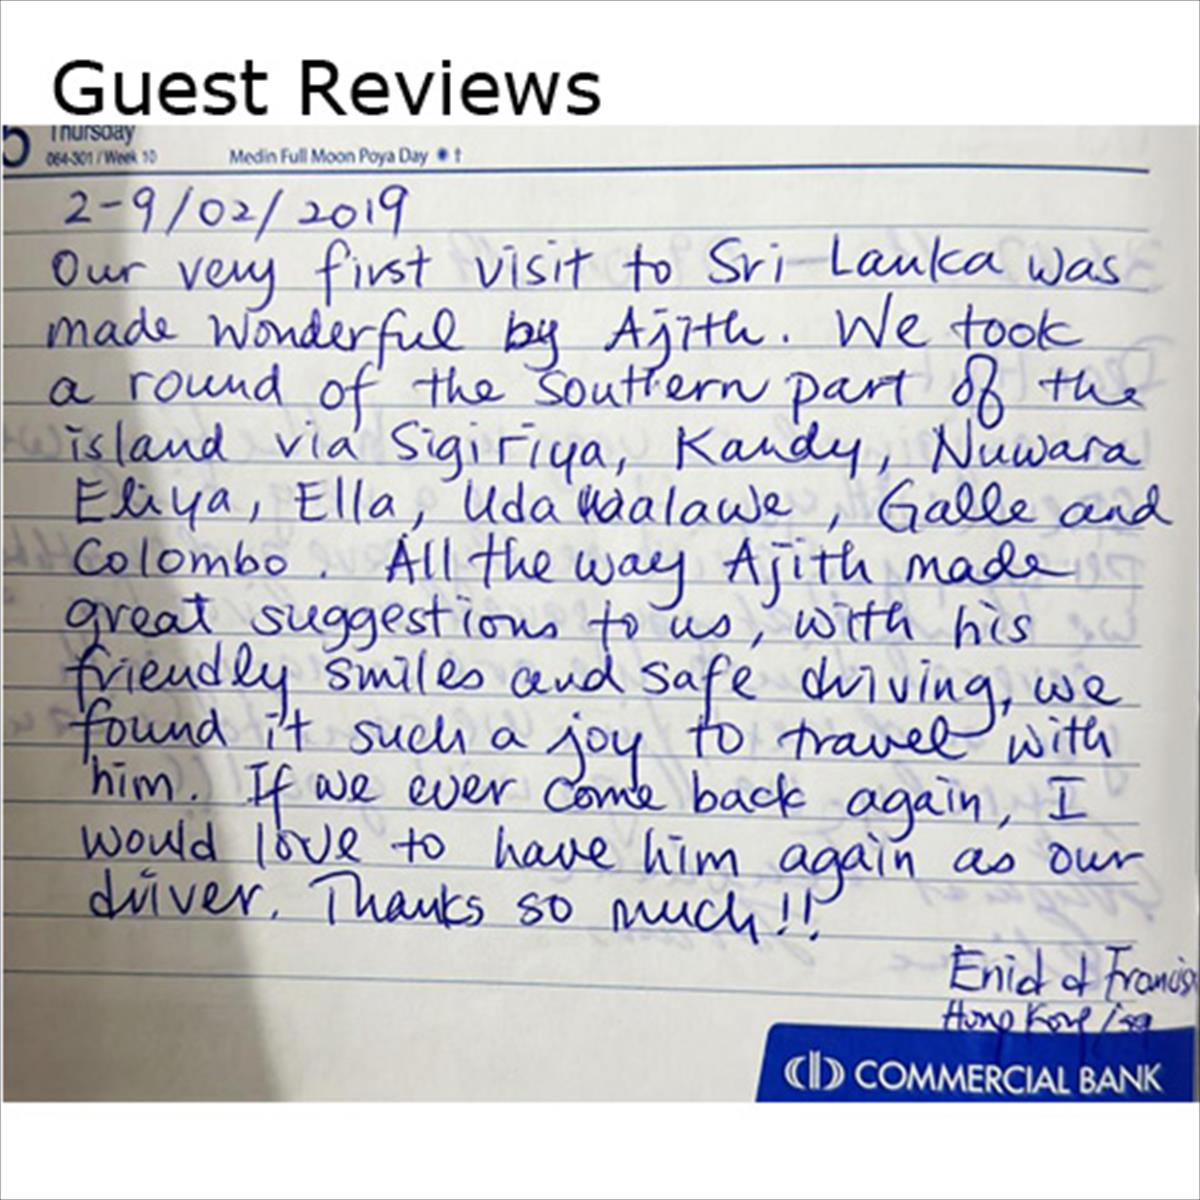 Guest Reviews
Thursday
064-301 / Week 10 Medin Full Moon Poya Day
2-9/02/2019
Our very first visit to Sri-Lanka was
made wonderful by Ajith. We took
a round of the southern part of the
island via Sigiriya, Kandy, Nuwara
Eliya, Ella, Uda Walawe, Galle and
Colombo. All the way Ajith made
great suggestions to us, with his
friendly smiles and safe driving, we
found it such a joy to travel with
him. If we ever come back again, I
would love to have him again as our
driver. Thanks so much!!
Enid & Francis
Hong Kong
COMMERCIAL BANK